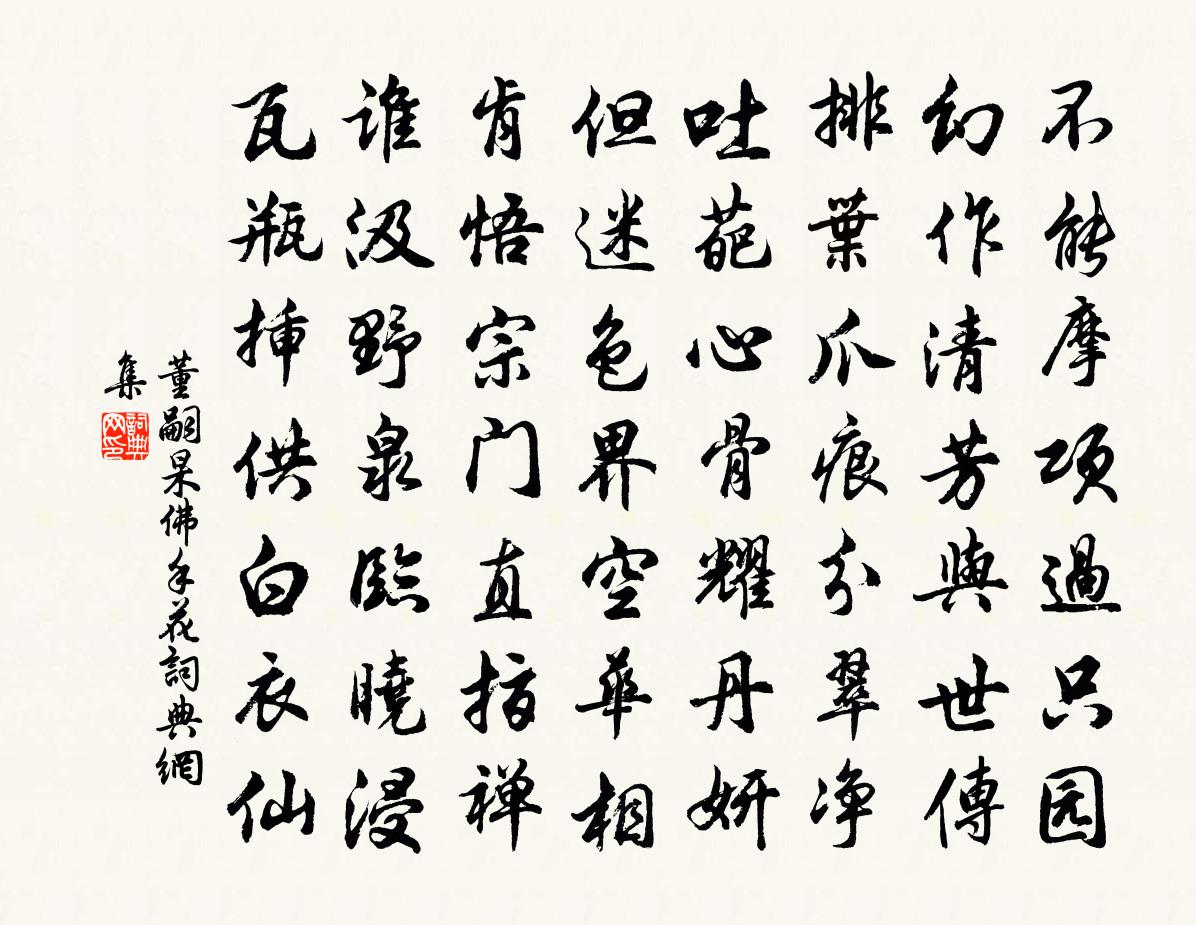 不能摩項過只园
幻作清芳與世傳
排葉爪痕分翠净
吐葩心骨耀丹妍
但迷色界空華相
肯悟宗门直指禅
谁汲野泉臨曉浸
瓦瓶揷供白衣仙
董嗣杲佛手花詞典網
集
詞典
网印